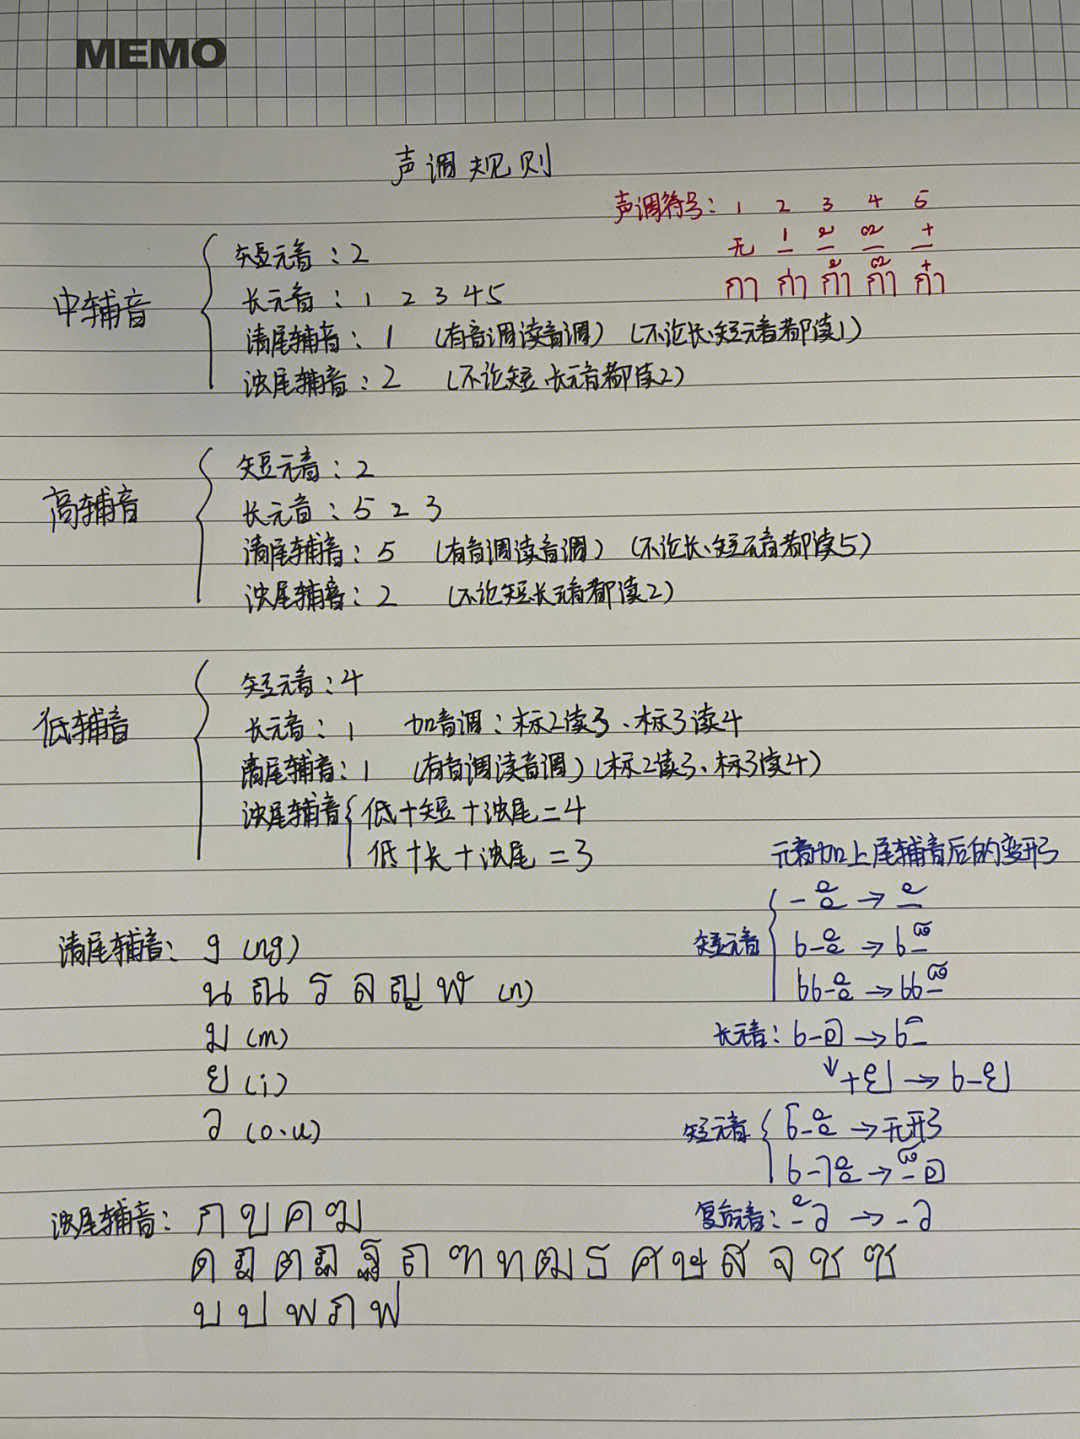 MEMO
声调规则
声调符号: 1 2 3 4 5
无 ่ ้ ๊ ๋
กา ก่า ก้า ก๊า ก๋า
中辅音
短元音: 2
长元音: 1 2 3 4 5
清尾辅音: 1 (有音调读音调) (不论长、短元音都读1)
浊尾辅音: 2 (不论短、长元音都读2)
高辅音
短元音: 2
长元音: 5 2 3
清尾辅音: 5 (有音调读音调) (不论长、短元音都读5)
浊尾辅音: 2 (不论短长元音都读2)
低辅音
短元音: 4
长元音: 1 加音调: 标2读3、标3读4
清尾辅音: 1 (有音调读音调) (标2读3、标3读4)
浊尾辅音 低+短+浊尾=4
低+长+浊尾=3
清尾辅音: ง (ng)
น ณ ร ล ญ ฬ (n)
ม (m)
ย (i)
ว (o.u)
浊尾辅音: ก ข ค ฆ
ด ฎ ต ฏ ฐ ถ ฑ ท ฒ ธ ศ ษ ส จ ช ซ
บ ป พ ภ ฟ
元音加上尾辅音后的变形
短元音 -ะ → -ั
เ-ะ → เ-็
แ-ะ → แ-็
长元音: เ-อ → เ-ิ
↓+ย → เ-ย
短元音 โ-ะ → 无形
เ-าะ → -็อ
复合元音: -ัว → -ว